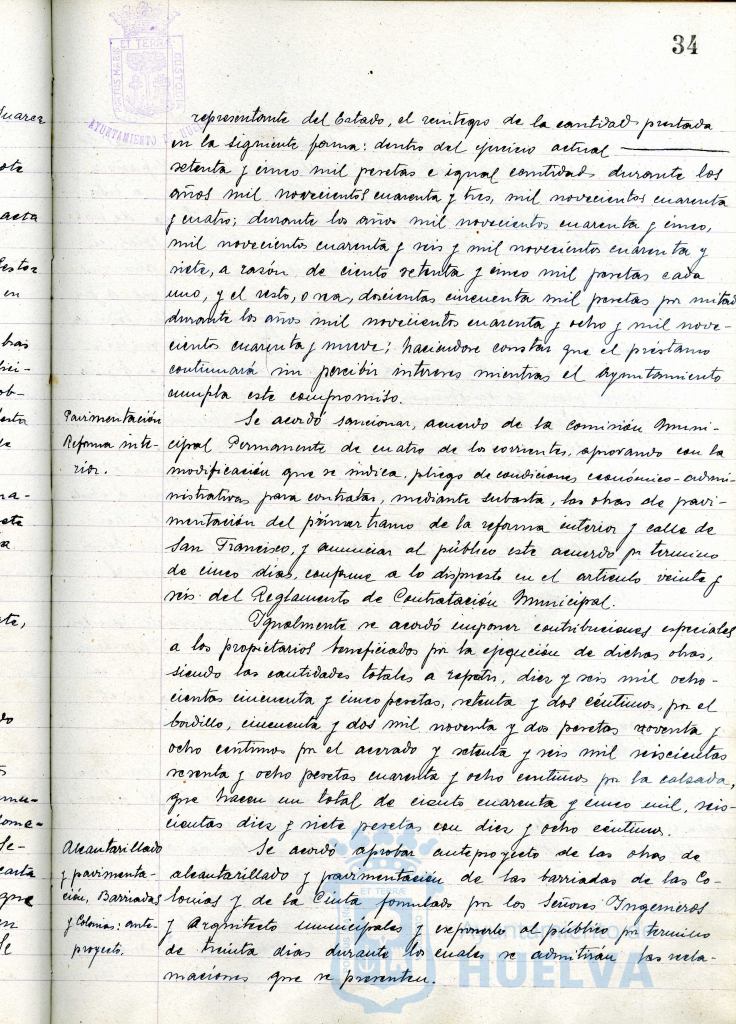 34
PORTUS MARIS ET TERRAE CUSTODIA
AYUNTAMIENTO DE HUELVA
representante del Estado, el reintegro de la cantidad prestada
en la siguiente forma: dentro del ejercicio actual
setenta y cinco mil pesetas e igual cantidad durante los
años mil novecientos cuarenta y tres, mil novecientos cuarenta
y cuatro; durante los años mil novecientos cuarenta y cinco,
mil novecientos cuarenta y seis y mil novecientos cuarenta y
siete, a razón de ciento setenta y cinco mil pesetas cada
uno, y el resto, o sea, doscientas cincuenta mil pesetas por mitad
durante los años mil novecientos cuarenta y ocho y mil nove-
cientos cuarenta y nueve; haciendose constar que el préstamo
continuará sin percibir intereses mientras el Ayuntamiento
cumpla este compromiso.
Pavimentación
Reforma inte-
rior.
Se acordó sancionar, acuerdo de la comisión Muni-
cipal Permanente de cuatro de los corrientes, aprobando con la
modificación que se indica, pliego de condiciones económico-admi-
nistrativas para contratar, mediante subasta, las obras de pavi-
mentación del primer tramo de la reforma interior y calle de
San Francisco, y anunciar al público este acuerdo por termino
de cinco dias, conforme a lo dispuesto en el articulo veinte y
seis del Reglamento de Contratación Municipal.
Igualmente se acordó imponer contribuciones especiales
a los propietarios beneficiados por la ejecución de dichas obras,
siendo las cantidades totales a repartir, diez y seis mil ocho-
cientas cincuenta y cinco pesetas, setenta y dos céntimos, por el
bordillo, cincuenta y dos mil noventa y dos pesetas noventa y
ocho centimos por el acerado y setenta y seis mil seiscientas
sesenta y ocho pesetas cuarenta y ocho centimos por la calzada,
que hacen un total de ciento cuarenta y cinco mil, seis-
cientas diez y siete pesetas con diez y ocho céntimos.
Alcantarillado
y pavimenta-
ción, Barriadas
y Colonias: ante-
proyecto.
Se acordó aprobar anteproyecto de las obras de
alcantarillado y pavimentación de las barriadas de las Co-
lonias y de la Cinta formulado por los Señores Ingenieros
y Arquitecto municipales y exponerlo al público por termino
de treinta dias durante los cuales se admitirán las recla-
maciones que se presenten.
Ayuntamiento de
HUELVA